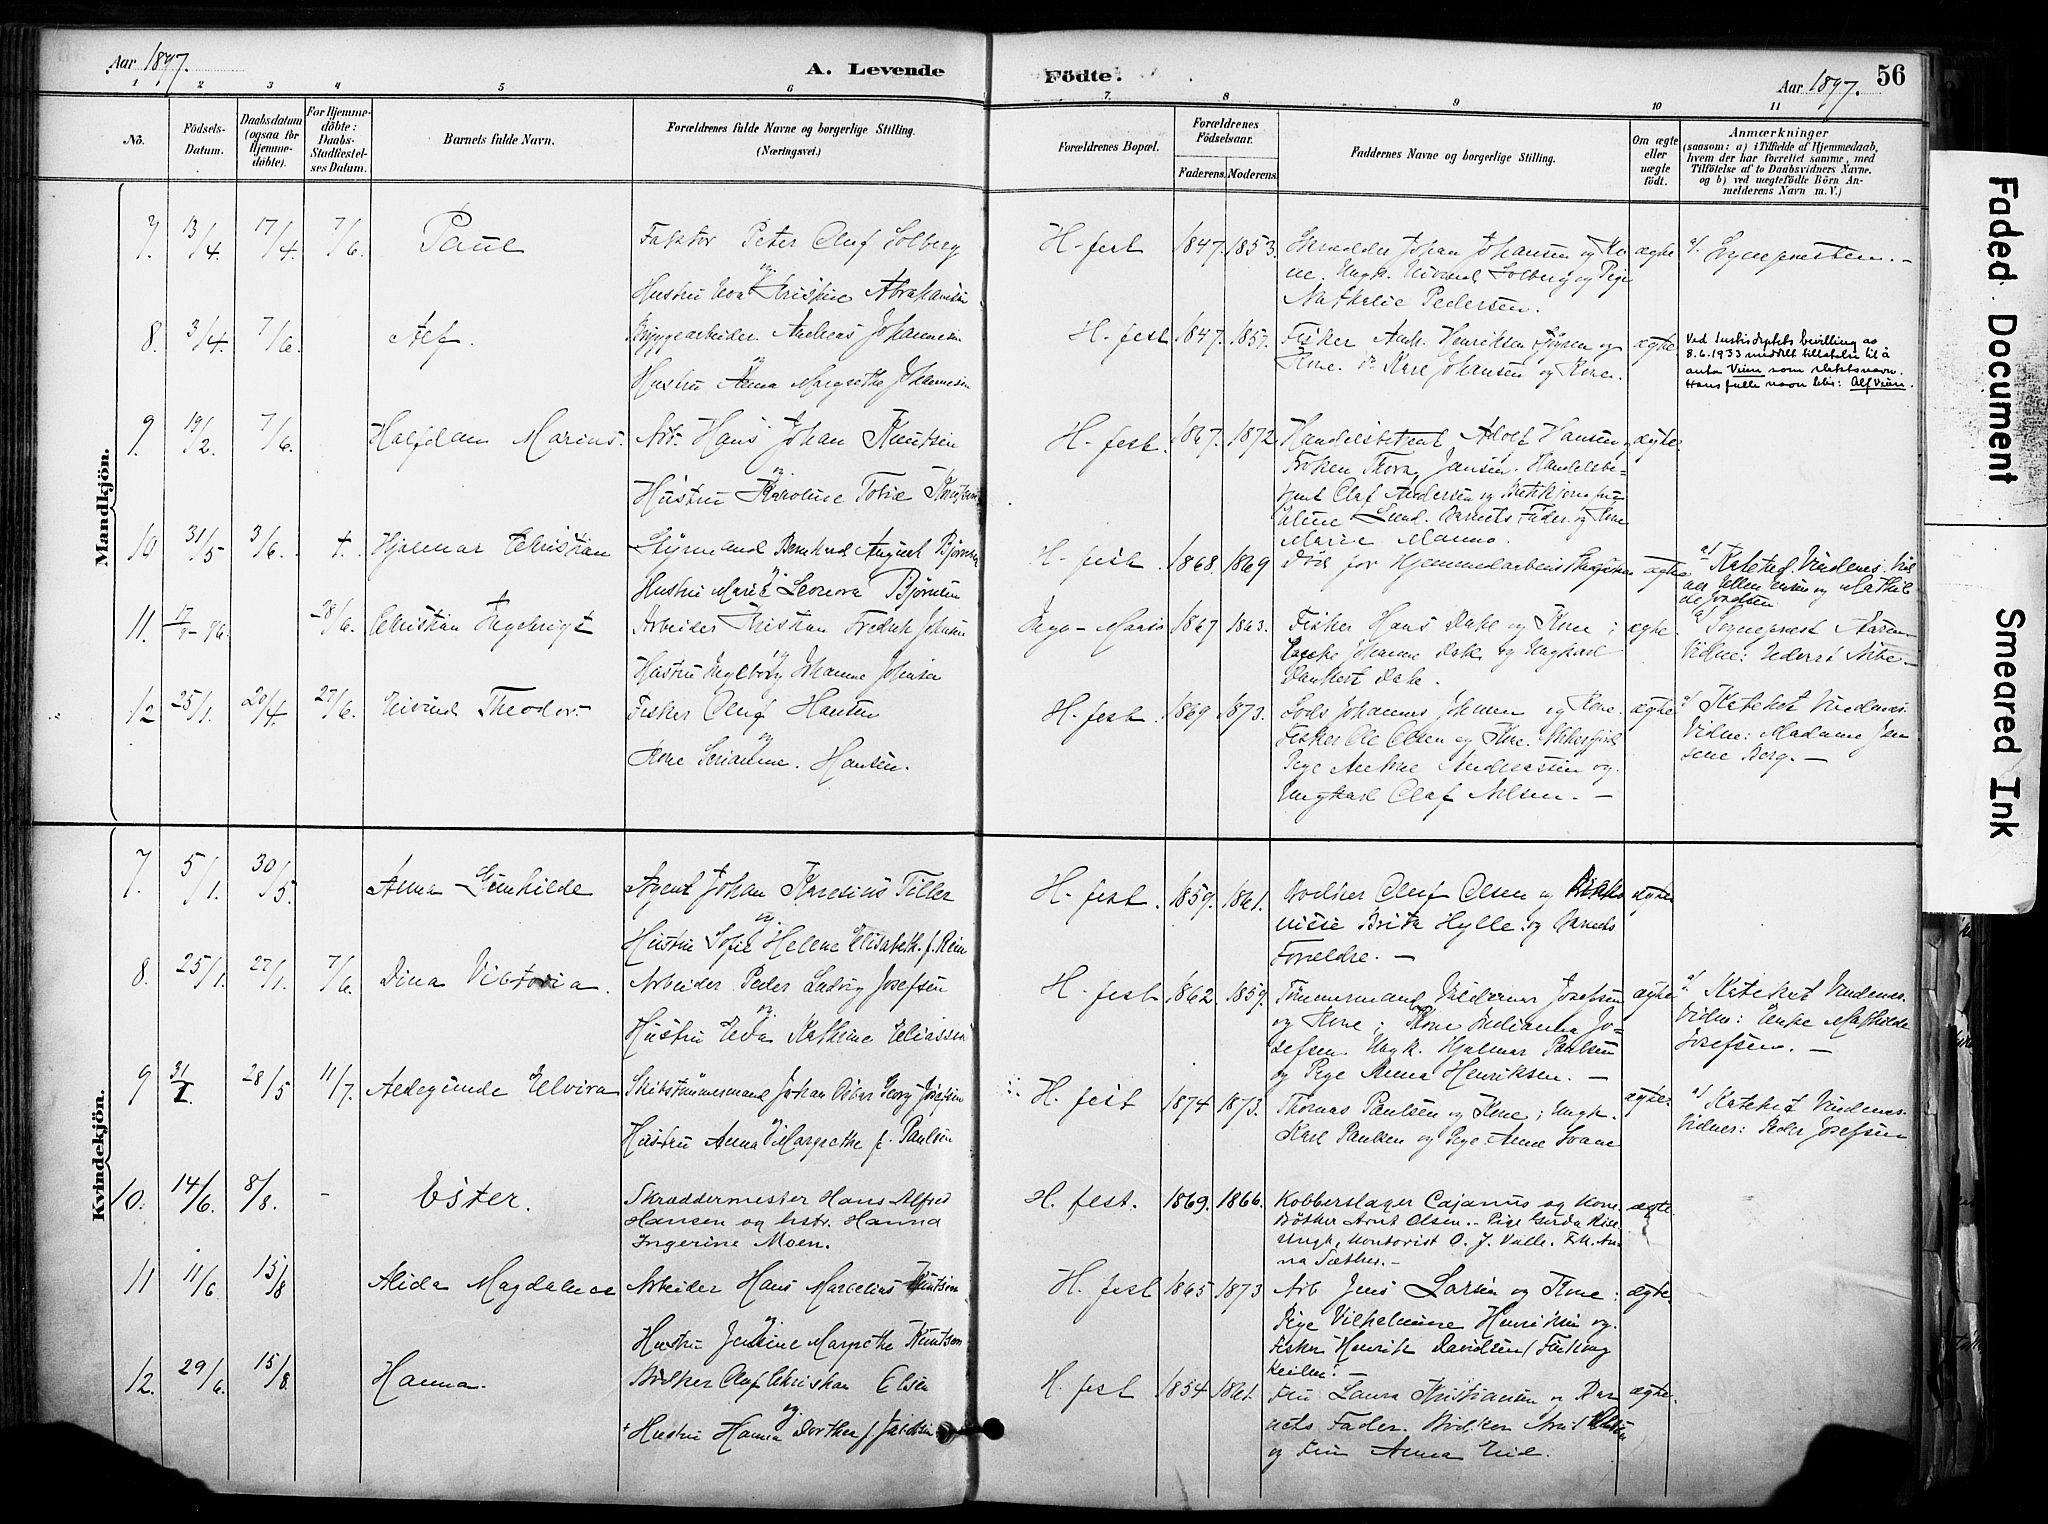 Aar 1897.
A. Levende
Födte.
Aar 1897.
56
1 2 3 4 5 6 7. 8 9 10 11
No.
Födsels-
Datum.
Daabsdatum
(ogsaa for
Hjemme-
döbte).
For Hjemme-
döbte:
Daabs-
Stadfestel-
ses Datum.
Barnets fulde Navn.
Forældrenes fulde Navne og borgerlige Stilling.
(Næringsvei.)
Forældrenes Bopæl.
Forældrenes
Födselsaar.
Faderens.
Moderens.
Faddernes Navne og borgerlige Stilling.
Om ægte
eller
uægte
födt.
Anmærkninger
(saasom: a) i Tilfælde af Hjemmedaab,
hvem der har forrettet samme, med
Tilföielse af to Daabsvidners Navne.
og b) ved uægtefödte Börn An-
melderens Navn m. V.)
Mandkjön.
7. 13/4 17/4 7/6. Paul
Faktor Peter Oluf Solberg
og
Hustru Kristine Abrahamsen
H-fest 1847. 1853.
Johan Johansen og Ko-
ne. Ungk. Solberg og Pige
Nathalie Pedersen.
ægte a/. Sognepresten. –
8. 3/4. 7/6. Alf.
Bryggearbeider Andreas Johannesen
og
Hustru Anna Margrethe Johannesen
H. fest 1847. 1857.
Fisker Henriksen og
Kone. Johansen og Kone.
ægte.
Ved Justisdeptets bevilling av
8.6.1933 meddelt tillatelse til å
anta Veum som slektsnavn.
Hans fulle navn blir: Alf Veum.
9. 19/2. 7/6. Halfdan Marius.
Arb. Hans Johan Knutsen
og
Hustru Karoline Tobie Knutsen
H. fest. 1867. 1872.
Handelsbetjent Adolf Hansen,
Frøken Thora Jansen. Handelsbe-
tjent Olaf Andersen og
Lund. Barnets Fader og Kone
Marie Manno.
ægte.
10 31/5 3/6. t. Hjalmar Christian
Styrmand Bernhard August Bjørnsen
og
Hustru Marie Leonora Bjørnsen
H. fest. 1868. 1869
Død før Hjemmedaabens
ægte
a/ Kateket Vindenes. Vid
og Mathil
de Josefsen
11. 17/9-96. 28/6. Christian Ingebrigt
Arbeider Kristian Fredrik Johnsen
og
Hustru Ingeborg Johanne Johnsen
1867 1863.
Fisker Hans Dahl og Kone;
Enke Johanne Dahl og Ungkarl
Dankert Dahl.
ægte.
a/ Sogneprest
Vidne:
12 25/1. 20/4. 27/6. Eivind Theodor
Fisker Oluf Hansen
og
Kone Hansen.
H. fest 1869 1873.
Lods Johannes Johnsen og Kone.
Fisker Ole Olsen og Kone.
Pige Andreassen og
Ungkarl Olaf Nilsen. –
ægte
a/ Kateket Vindenes.
Vidne: Madame Jen
sene Berg. –
Kvindekjön.
7. 5/1. 30/5. Anna Gunhilde
Agent Johan Karelius Tiller
og
Hustru Sofie Helene Elisabeth f. Rein
H. fest. 1859. 1861.
Bødker Oluf Olsen og
Brita Hylle og Barnets
Foreldre. –
ægte
8. 25/1. 27/1. 7/6. Dina Viktoria.
Arbeider Peder Ludvig Josefsen
og
Hustru Eva Kathrine Eliassen
H. fest 1862 1859.
Tømmermand Valdemar Josefsen
og Kone; Kone Julianna Jo-
sefsen. Ungk. Hjalmar Paulsen
og Pige Anna Henriksen. –
ægte
a/ Kateket Vindenes.
Vidne: Enke Mathilde
Josefsen. –
9 28/5 11/7. Aldegunde Elvira
Skibstømmermand Johan Oskar Georg Josefsen
og
Hustru Anna Margrethe f. Paulsen
H. fest 1874 1873.
Thomas Paulsen og Kone; Ungk.
Karl Paulsen og Pige Anne Svane
ægte.
a/ Kateket Vindenes.
Vidner: Peder Josefsen
10. 14/6. 8/8. – Ester.
Skræddermester Hans Alfred
Hansen og hstr. Hanna
Ingerine Moen.
H. fest. 1869. 1866.
Kobberslager Cajanus og Kone
Bøtker Arnt Olsen. – Pige Gerda
Ungk. Kontorist O. J. Valle. Frk. An-
na Sæther. –
ægte.
11 11/6 15/8 Alida Magdalene
Arbeider Hans Marcelius Knutsen
og
Hustru Jensine Margrethe Knutsen
H. fest 1865 1873
Arb Jens Larsen og Kone;
Pige Vilhelmine Henriksen og
Fisker Henrik Davidsen
ægte.
12. 29/6. 15/8. Hanna.
Bødker Olaf Christian Olsen
og
Hustru Hanna Dorthea f. Jacobsen
H. fest 1854 1861.
Fru Laura Kristiansen og Bar
nets Fader. Bødker Arnt Olsen
og Fru Anna Eid.
ægte.
Faded Document
Smeared Ink